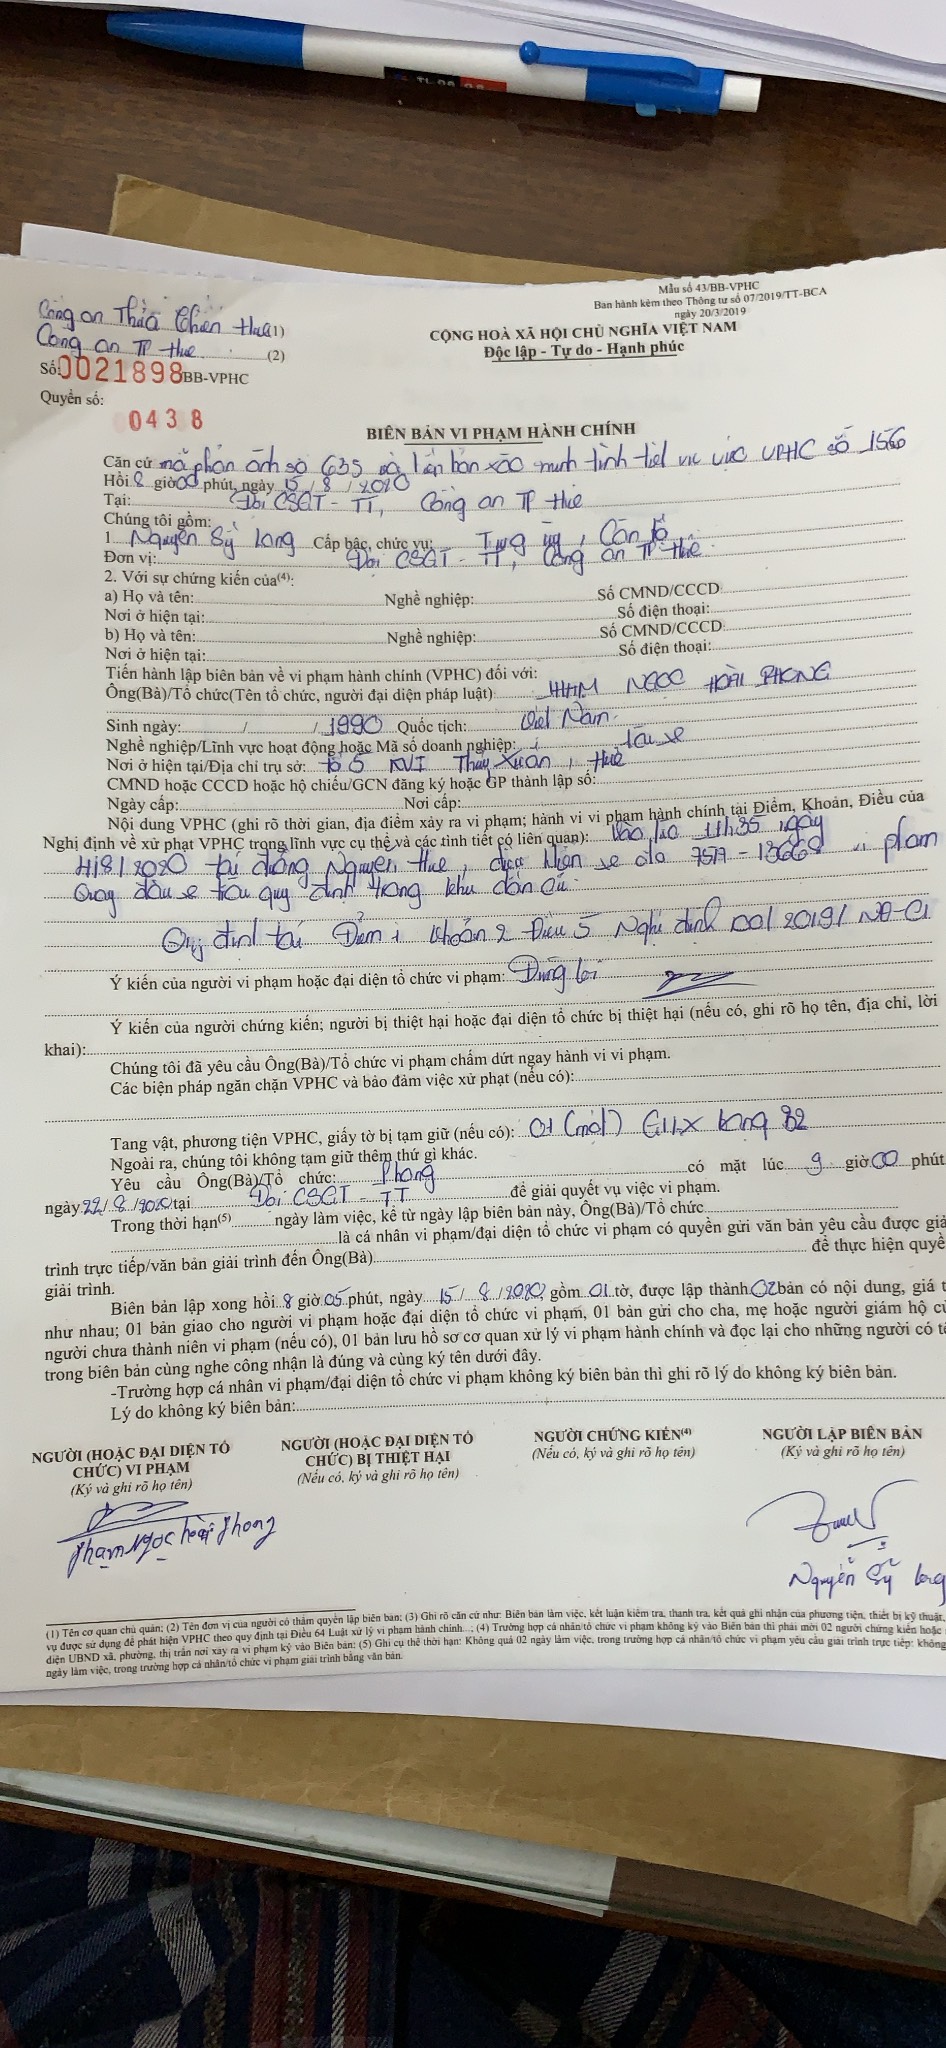 Mẫu số 43/BB-VPHC
Ban hành kèm theo Thông tư số 07/2019/TT-BCA
ngày 20/3/2019
Công an Thừa Thiên Huế (1)
Công an TP Huế (2)
Số: 0021898 BB-VPHC
Quyển số: 0438
CỘNG HOÀ XÃ HỘI CHỦ NGHĨA VIỆT NAM
Độc lập - Tự do - Hạnh phúc
BIÊN BẢN VI PHẠM HÀNH CHÍNH
Căn cứ mã phản ánh số 635 và biên bản xác minh tình tiết vụ việc VPHC số 1566
Hồi 8 giờ 00 phút, ngày 15/8/2020
Tại: Đội CSGT - TT, Công an TP Huế
Chúng tôi gồm:
1 Nguyễn Sỹ Long Cấp bậc, chức vụ: Trung úy, Cán bộ
Đơn vị: Đội CSGT - TT, Công an TP Huế
2. Với sự chứng kiến của(4):
a) Họ và tên: Nghề nghiệp: Số CMND/CCCD:
Nơi ở hiện tại: Số điện thoại:
b) Họ và tên: Nghề nghiệp: Số CMND/CCCD:
Nơi ở hiện tại: Số điện thoại:
Tiến hành lập biên bản về vi phạm hành chính (VPHC) đối với:
Ông(Bà)/Tổ chức(Tên tổ chức, người đại diện pháp luật): NGỌC HOÀI PHONG
Sinh ngày: / /1990 Quốc tịch: Việt Nam
Nghề nghiệp/Lĩnh vực hoạt động hoặc Mã số doanh nghiệp: Lái xe
Nơi ở hiện tại/Địa chỉ trụ sở: tổ 5 KVI Thủy Xuân, Huế
CMND hoặc CCCD hoặc hộ chiếu/GCN đăng ký hoặc GP thành lập số:
Ngày cấp: Nơi cấp:
Nội dung VPHC (ghi rõ thời gian, địa điểm xảy ra vi phạm; hành vi vi phạm hành chính tại Điểm, Khoản, Điều của
Nghị định về xử phạt VPHC trong lĩnh vực cụ thể và các tình tiết có liên quan): Vào lúc 11h35 ngày
4/8/2020 tại đường Nguyễn Huế, điều khiển xe ôtô 75A - 13668 vi phạm
Quay đầu xe trái quy định trong khu dân cư.
Quy định tại Điểm i Khoản 2 Điều 5 Nghị định 100/2019/NĐ-CP
Ý kiến của người vi phạm hoặc đại diện tổ chức vi phạm: Đúng lỗi
Ý kiến của người chứng kiến; người bị thiệt hại hoặc đại diện tổ chức bị thiệt hại (nếu có, ghi rõ họ tên, địa chỉ, lời
khai):
Chúng tôi đã yêu cầu Ông(Bà)/Tổ chức vi phạm chấm dứt ngay hành vi vi phạm.
Các biện pháp ngăn chặn VPHC và bảo đảm việc xử phạt (nếu có):
Tang vật, phương tiện VPHC, giấy tờ bị tạm giữ (nếu có): 01 (một) GPLX hạng B2
Ngoài ra, chúng tôi không tạm giữ thêm thứ gì khác.
Yêu cầu Ông(Bà)/Tổ chức: Phong có mặt lúc 9 giờ 00 phút
ngày 22/8/2020 tại Đội CSGT - TT để giải quyết vụ việc vi phạm.
Trong thời hạn(5) ngày làm việc, kể từ ngày lập biên bản này, Ông(Bà)/Tổ chức
là cá nhân vi phạm/đại diện tổ chức vi phạm có quyền gửi văn bản yêu cầu được giả
trình trực tiếp/văn bản giải trình đến Ông(Bà) để thực hiện quyề
giải trình.
Biên bản lập xong hồi 8 giờ 05 phút, ngày 15/8/2020, gồm 01 tờ, được lập thành 02 bản có nội dung, giá t
như nhau; 01 bản giao cho người vi phạm hoặc đại diện tổ chức vi phạm, 01 bản gửi cho cha, mẹ hoặc người giám hộ củ
người chưa thành niên vi phạm (nếu có), 01 bản lưu hồ sơ cơ quan xử lý vi phạm hành chính và đọc lại cho những người có t
trong biên bản cùng nghe công nhận là đúng và cùng ký tên dưới đây.
-Trường hợp cá nhân vi phạm/đại diện tổ chức vi phạm không ký biên bản thì ghi rõ lý do không ký biên bản.
Lý do không ký biên bản:
NGƯỜI (HOẶC ĐẠI DIỆN TỔ CHỨC) VI PHẠM
(Ký và ghi rõ họ tên)
Phạm Ngọc Hoài Phong
NGƯỜI (HOẶC ĐẠI DIỆN TỔ CHỨC) BỊ THIỆT HẠI
(Nếu có, ký và ghi rõ họ tên)
NGƯỜI CHỨNG KIẾN(4)
(Nếu có, ký và ghi rõ họ tên)
NGƯỜI LẬP BIÊN BẢN
(Ký và ghi rõ họ tên)
Nguyễn Sỹ Long
(1) Tên cơ quan chủ quản; (2) Tên đơn vị của người có thẩm quyền lập biên bản; (3) Ghi rõ căn cứ như: Biên bản làm việc, kết luận kiểm tra, thanh tra, kết quả ghi nhận của phương tiện, thiết bị kỹ thuật,
vụ được sử dụng để phát hiện VPHC theo quy định tại Điều 64 Luật xử lý vi phạm hành chính...; (4) Trường hợp cá nhân/tổ chức vi phạm không ký vào Biên bản thì phải mời 02 người chứng kiến hoặc
diện UBND xã, phường, thị trấn nơi xảy ra vi phạm ký vào Biên bản; (5) Ghi cụ thể thời hạn: Không quá 02 ngày làm việc, trong trường hợp cá nhân/tổ chức vi phạm yêu cầu giải trình trực tiếp; không
ngày làm việc, trong trường hợp cá nhân/tổ chức vi phạm giải trình bằng văn bản.